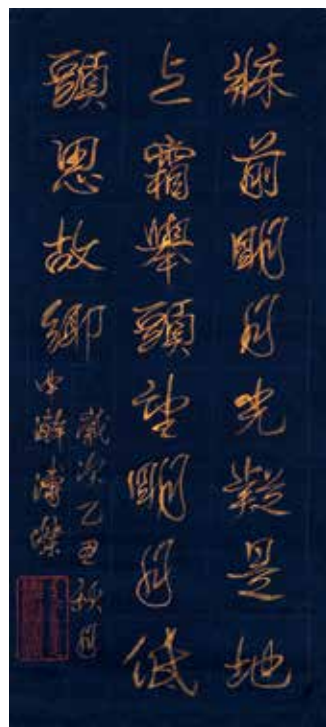 牀前明月光疑是地
上霜舉頭望明月低
頭思故鄉
歲次乙丑秋月
中澣溥傑